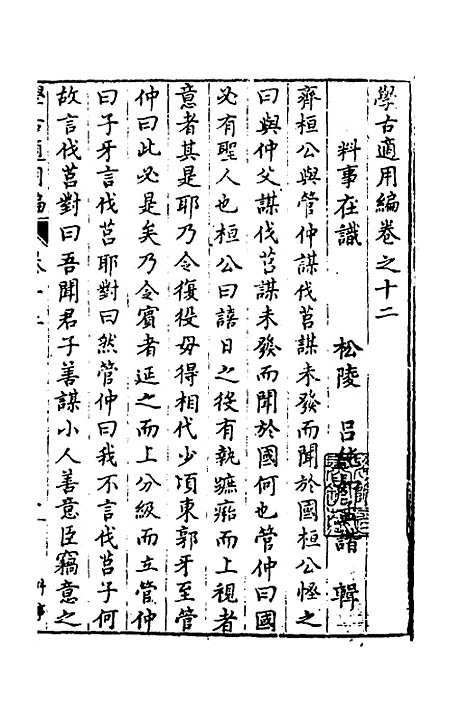 學古適用編卷之十二
料事在識 松陵 呂 輯
齊桓公與管仲謀伐莒謀未發而聞於國桓公怪之
曰與仲父謀伐莒謀未發而聞於國何也管仲曰國
必有聖人也桓公曰譆日之役有執蹠𤺊而上視者
意者其是耶乃令復役毋得相代少頃東郭牙至管
仲曰此必是矣乃令賓者延之而上分級而立管仲
曰子牙言伐莒耶對曰然管仲曰我不言伐莒子何
故言伐莒對曰吾聞君子善謀小人善意臣竊意之
學古適用編 卷十二 料事